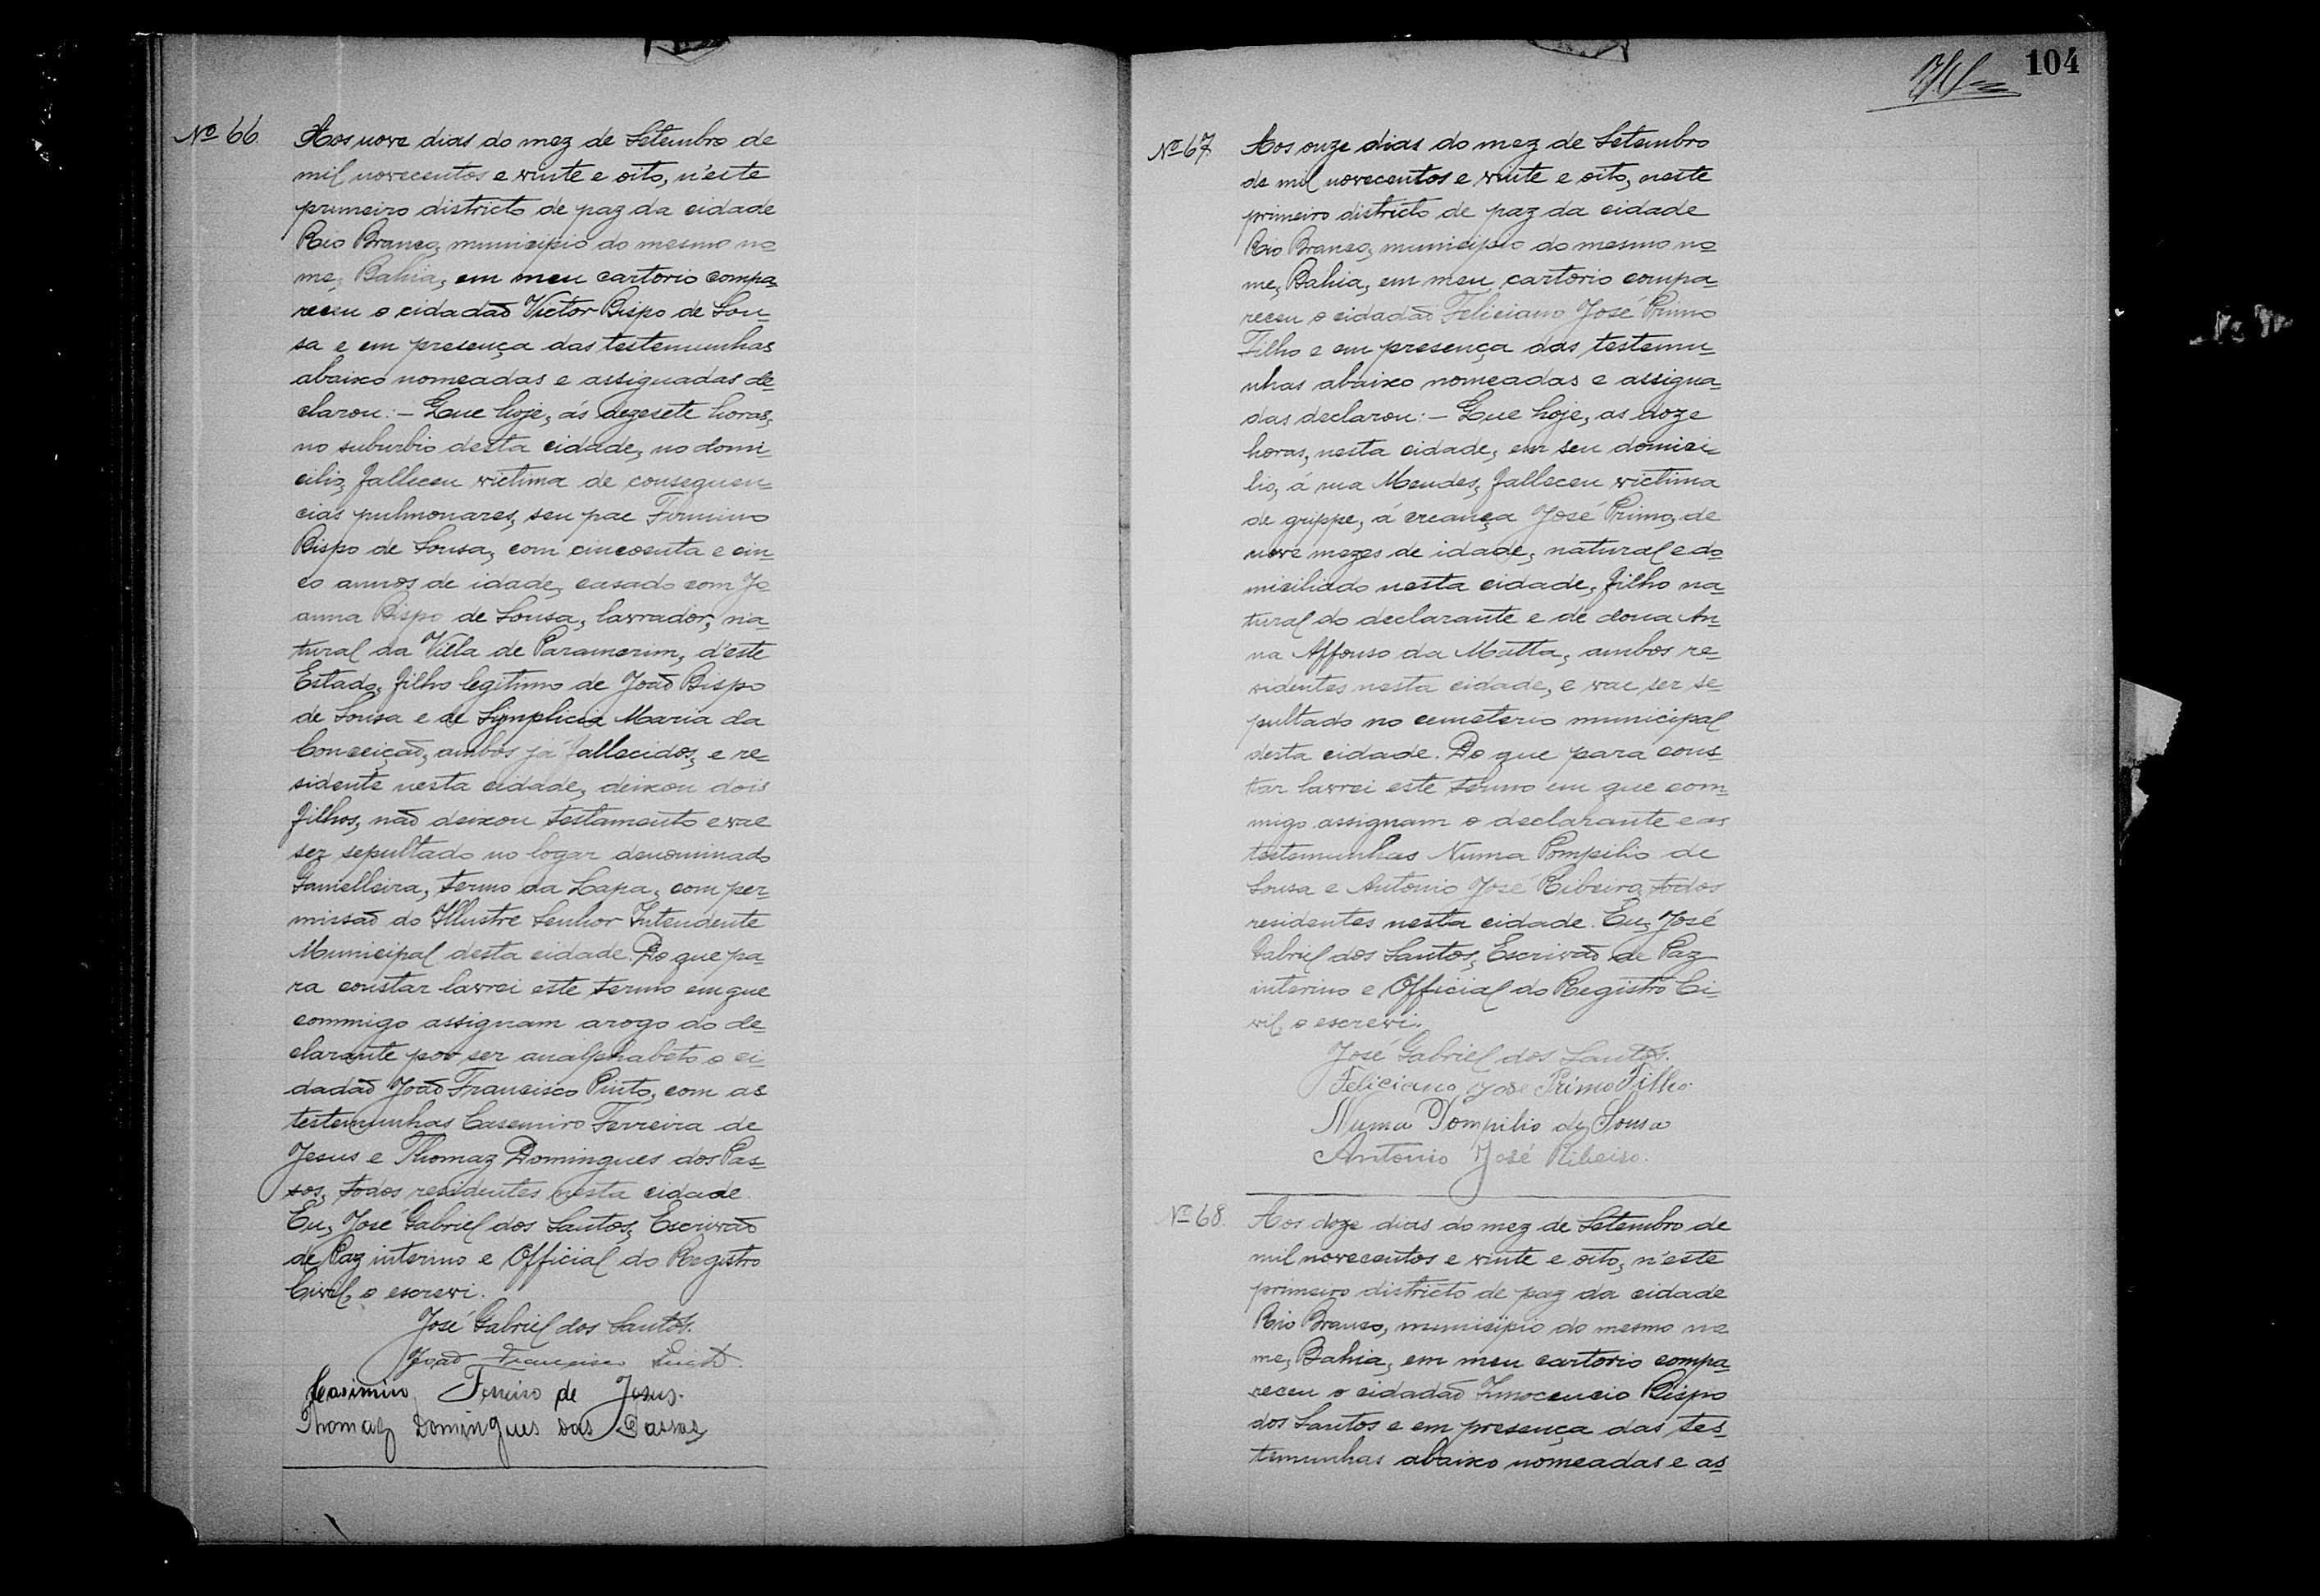 Nº 66.
Aos nove dias do mez de Setembro de
mil novecentos e vinte e oito, n'este
primeiro districto de paz da cidade
Rio Branco, municipio do mesmo no-
me, Bahia, em meu cartorio compa-
receu o cidadão Victor Bispo de Sou-
sa e em presença das testemunhas
abaixo nomeadas e assignadas de-
clarou: - Que hoje, ás dezesete horas,
no suburbio desta cidade, no domi-
cilio, falleceu victima de consequen-
cias pulmonares, seu pae Firmino
Bispo de Sousa, com cincoenta e cin-
co annos de idade, casado com Jo-
anna Bispo de Sousa, lavrador, na-
tural da Villa de Paramerim, d'este
Estado, filho legitimo de João Bispo
de Sousa e de Symplicia Maria da
Conceição, ambos já fallecidos, e re-
sidente nesta cidade, deixou dois
filhos, não deixou testamento e vae
ser sepultado no logar denominado
Gamelleira, termo da Lapa, com per-
missão do Illustre Senhor Intendente
Municipal desta cidade. Do que pa-
ra constar lavrei este termo em que
commigo assignam arogo do de-
clarante por ser analphabeto o ci-
dadão João Francisco Pinto, com as
testemunhas Casemiro Ferreira de
Jesus e Thomaz Domingues dos Pas-
sos, todos residentes nesta cidade.
Eu, José Gabriel dos Santos, Escrivão
de Paz interino e Official do Registro
Civil, o escrevi.
José Gabriel dos Santos.
João Francisco
Casimiro Ferreiro de Jesus.
Thomaz Domingues das Passos
104
Nº 67
Aos onze dias do mez de Setembro
de mil novecentos e vinte e oito, neste
primeiro districto de paz da cidade
Rio Branco, municipio do mesmo no-
me, Bahia, em meu cartorio compa-
receu o cidadão Feliciano José Primo
Filho e em presença das testemu-
nhas abaixo nomeadas e assigna-
das declarou: - Que hoje, as doze
horas, nesta cidade, em seu domici-
lio, á rua Mendes, falleceu victima
de grippe, á creança José Primo, de
nove mezes de idade, natural e do-
miciliado nesta cidade, filho na-
tural do declarante e de dona An-
na Affonso da Matta, ambos re-
sidentes nesta cidade, e vae ser se-
pultado no cemeterio municipal
desta cidade. Do que para cons-
tar lavrei este termo em que com-
migo assignam o declarante e as
testemunhas Numa Pompilio de
Sousa e Antonio José Ribeiro, todos
residentes nesta cidade. Eu, José
Gabriel dos Santos, Escrivão de Paz
interino e Official do Registro Ci-
vil, o escrevi.
José Gabriel dos Santos.
Feliciano Jose Primo Filho.
Numa Pompilio de Sousa
Antonio José Ribeiro.
Nº 68.
Aos doze dias do mez de Setembro de
mil novecentos e vinte e oito, n'este
primeiro districto de paz da cidade
Rio Branco, municipio do mesmo no-
me, Bahia, em meu cartorio compa-
receu o cidadão Innocencio Bispo
dos Santos e em presença das tes-
temunhas abaixo nomeadas e as-